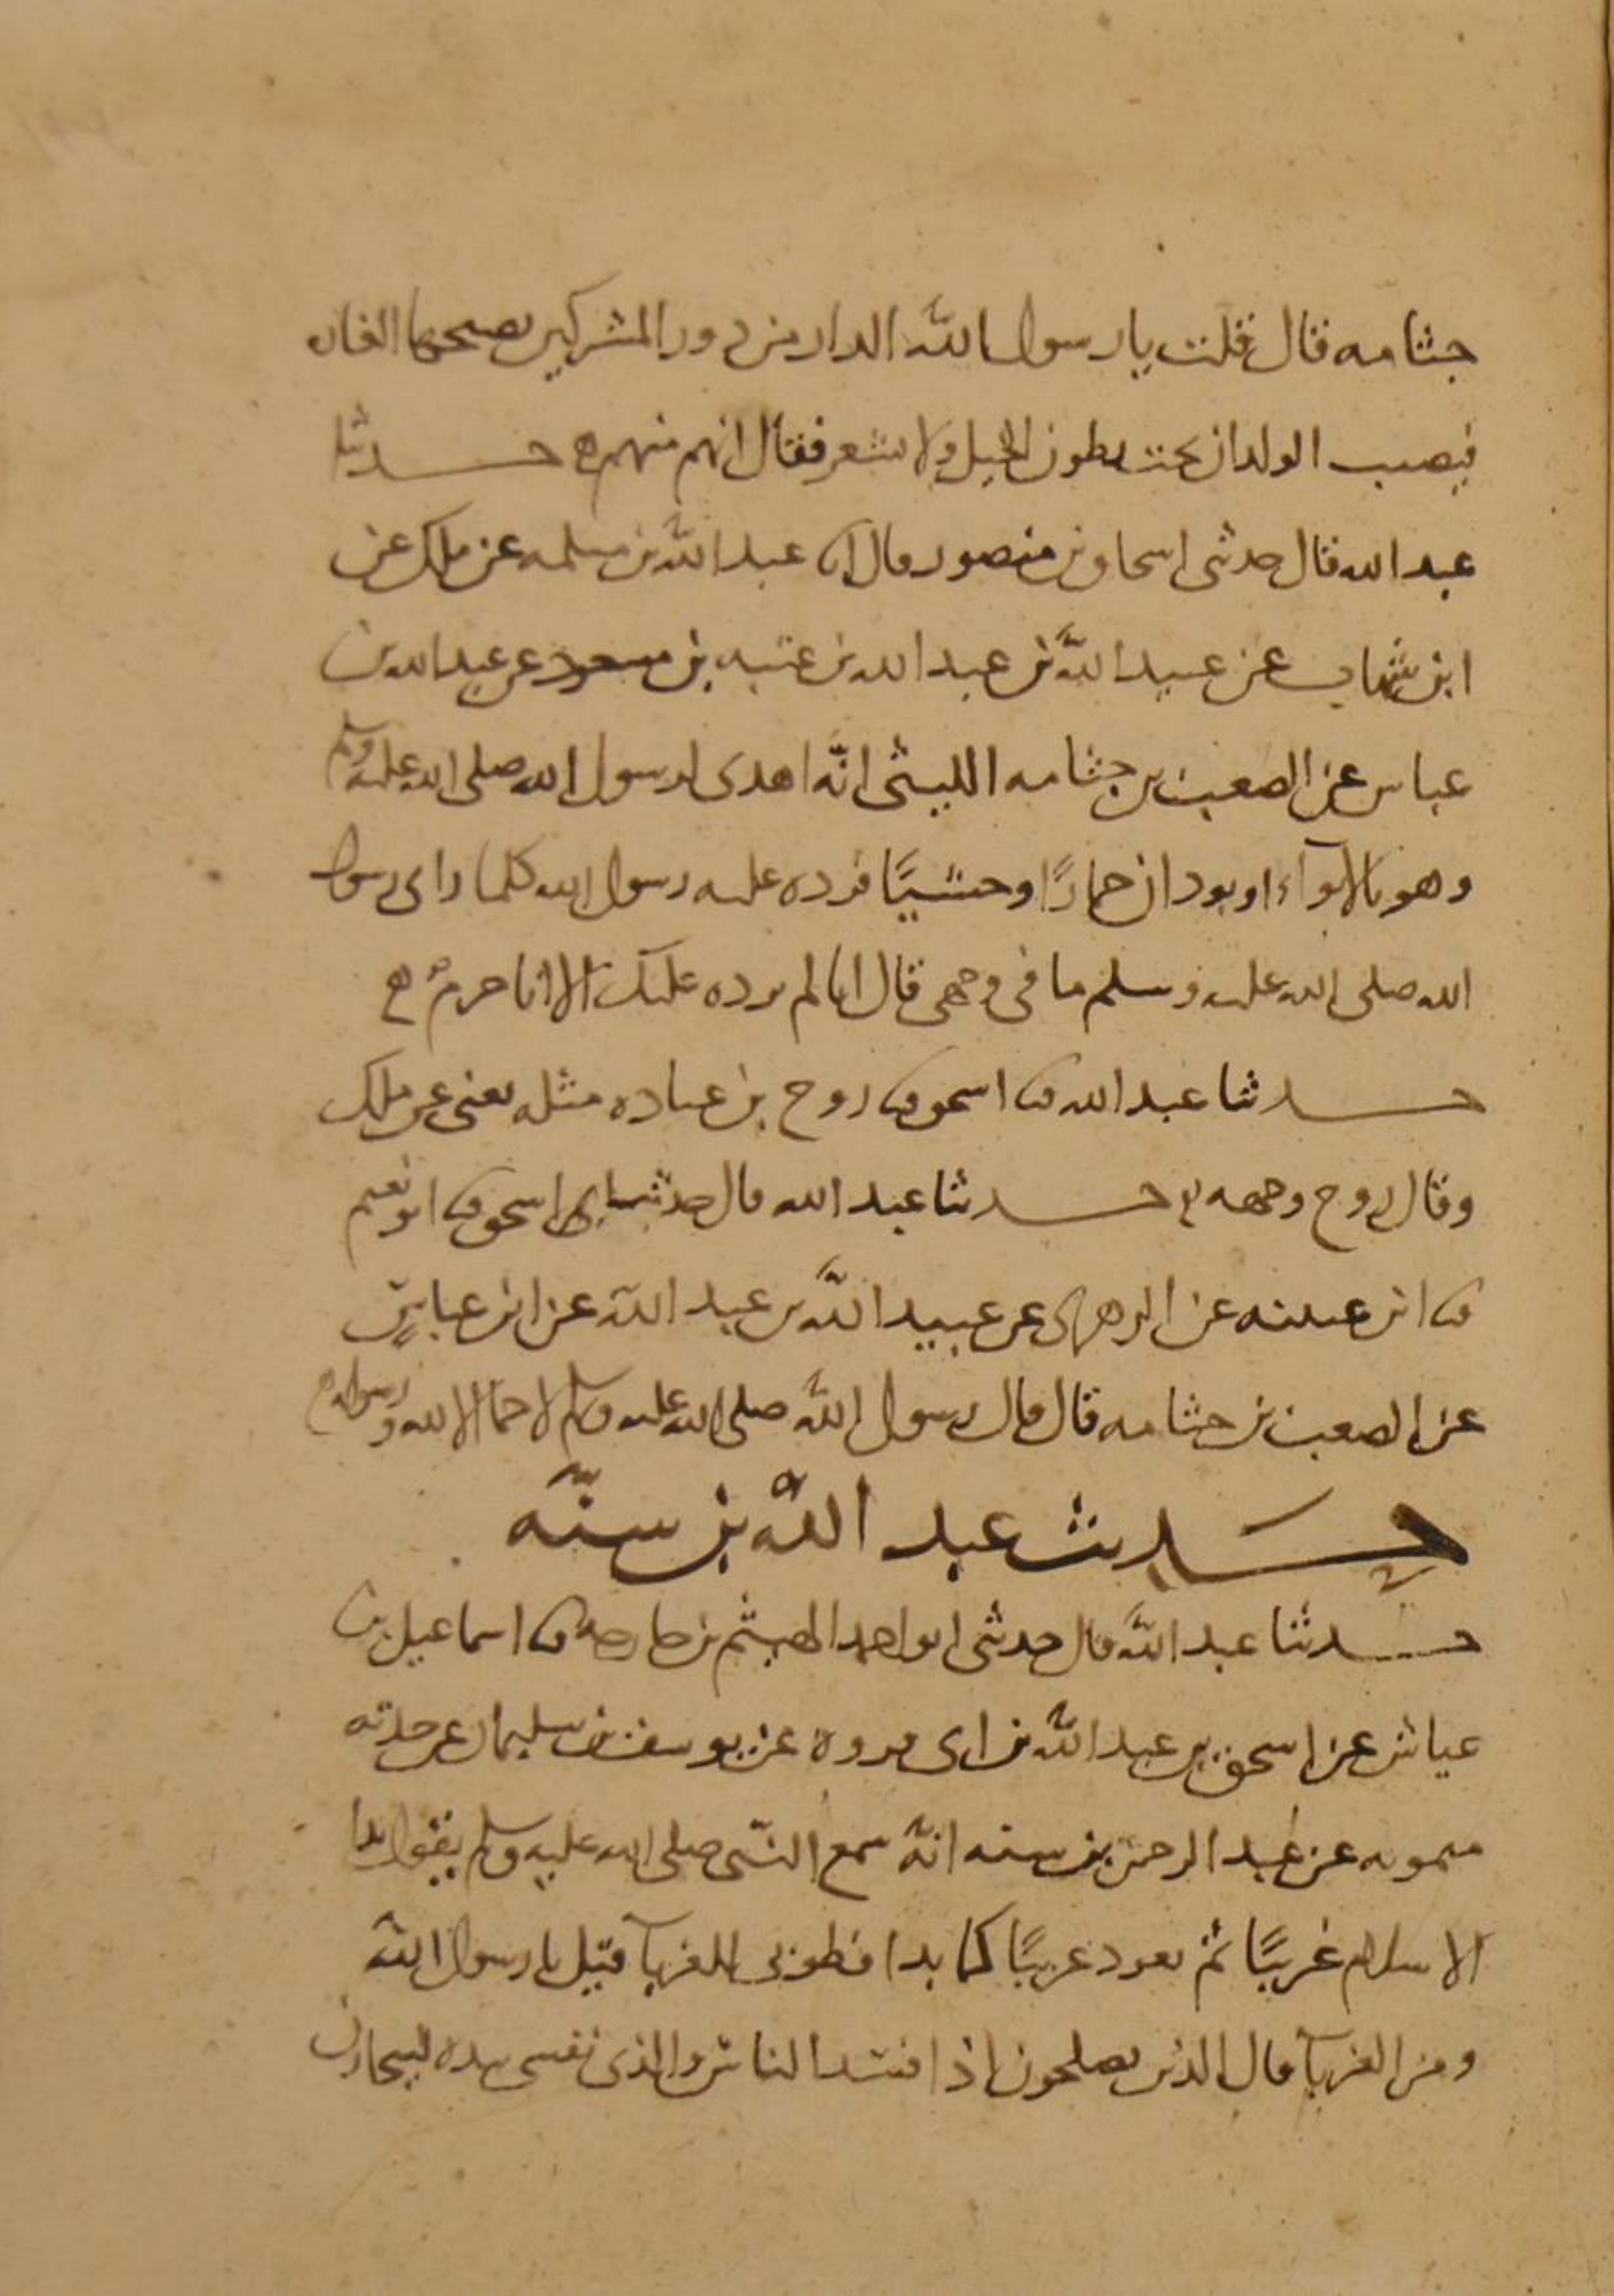 جثامه قال قلت يا رسول الله الدار من دور المشركين نصبحها الغاره
فيصيب الولدان تحت بطون الخيل ولا نشعر فقال انهم منهم ه حدثنا
عبد الله قال حدثنى اسحاق بن منصور قال انا عبد الله بن مسلمه عن ملك عن
ابن شهاب عن عبيد الله بن عبد الله بن عتبه بن مسعود عن عبد الله بن
عباس عن الصعب بن جثامه الليثى انه اهدى لرسول الله صلى الله عليه وسلم
وهو بالابوآء او بودان حمارًا وحشيًا فرده عليه رسول الله كلما راى رسول
الله صلى الله عليه وسلم ما فى وجهى قال انا لم نرده عليك الا انا حرم ه
حدثنا عبد الله ثنا اسحق ثنا روح بن عباده مثله يعنى عن ملك
وقال روح وجهه ه حدثنا عبد الله قال حدثنا اسحق ثنا ابو نعيم
ثنا ابن عيينه عن الزهرى عن عبيد الله بن عبد الله عن ابن عباس
عن الصعب بن جثامه قال قال رسول الله صلى الله عليه وسلم لا حما الا لله ورسوله ه
حديث عبد الله بن سنّه
حدثنا عبد الله قال حدثنى ابو احمد الهيثم بن خارجه ثنا اسماعيل بن
عياش عن اسحق بن عبد الله بن ابى فروة عن يوسف بن سليمان عن جدته
ميمونه عن عبد الرحمن بن سنه انه سمع النبى صلى الله عليه وسلم يقول بدا
الاسلام غريبًا ثم يعود غريبًا كما بدا فطوبى للغربآ قيل يا رسول الله
ومن الغربآ قال الذين يصلحون اذا فسد الناس والذى نفسى بيده ليحازن